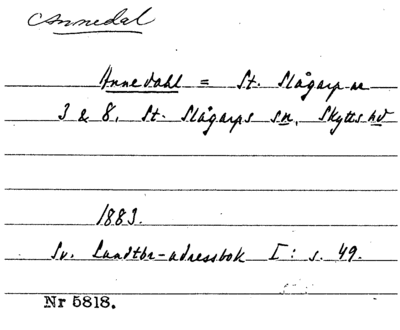 Annedal
Annedahl = St. Slågarp nr
3 & 8, St. Slågarps sn, Skytts hd
1883.
Sv. Landtbr-adressbok I: s. 49.
Nr 5818.